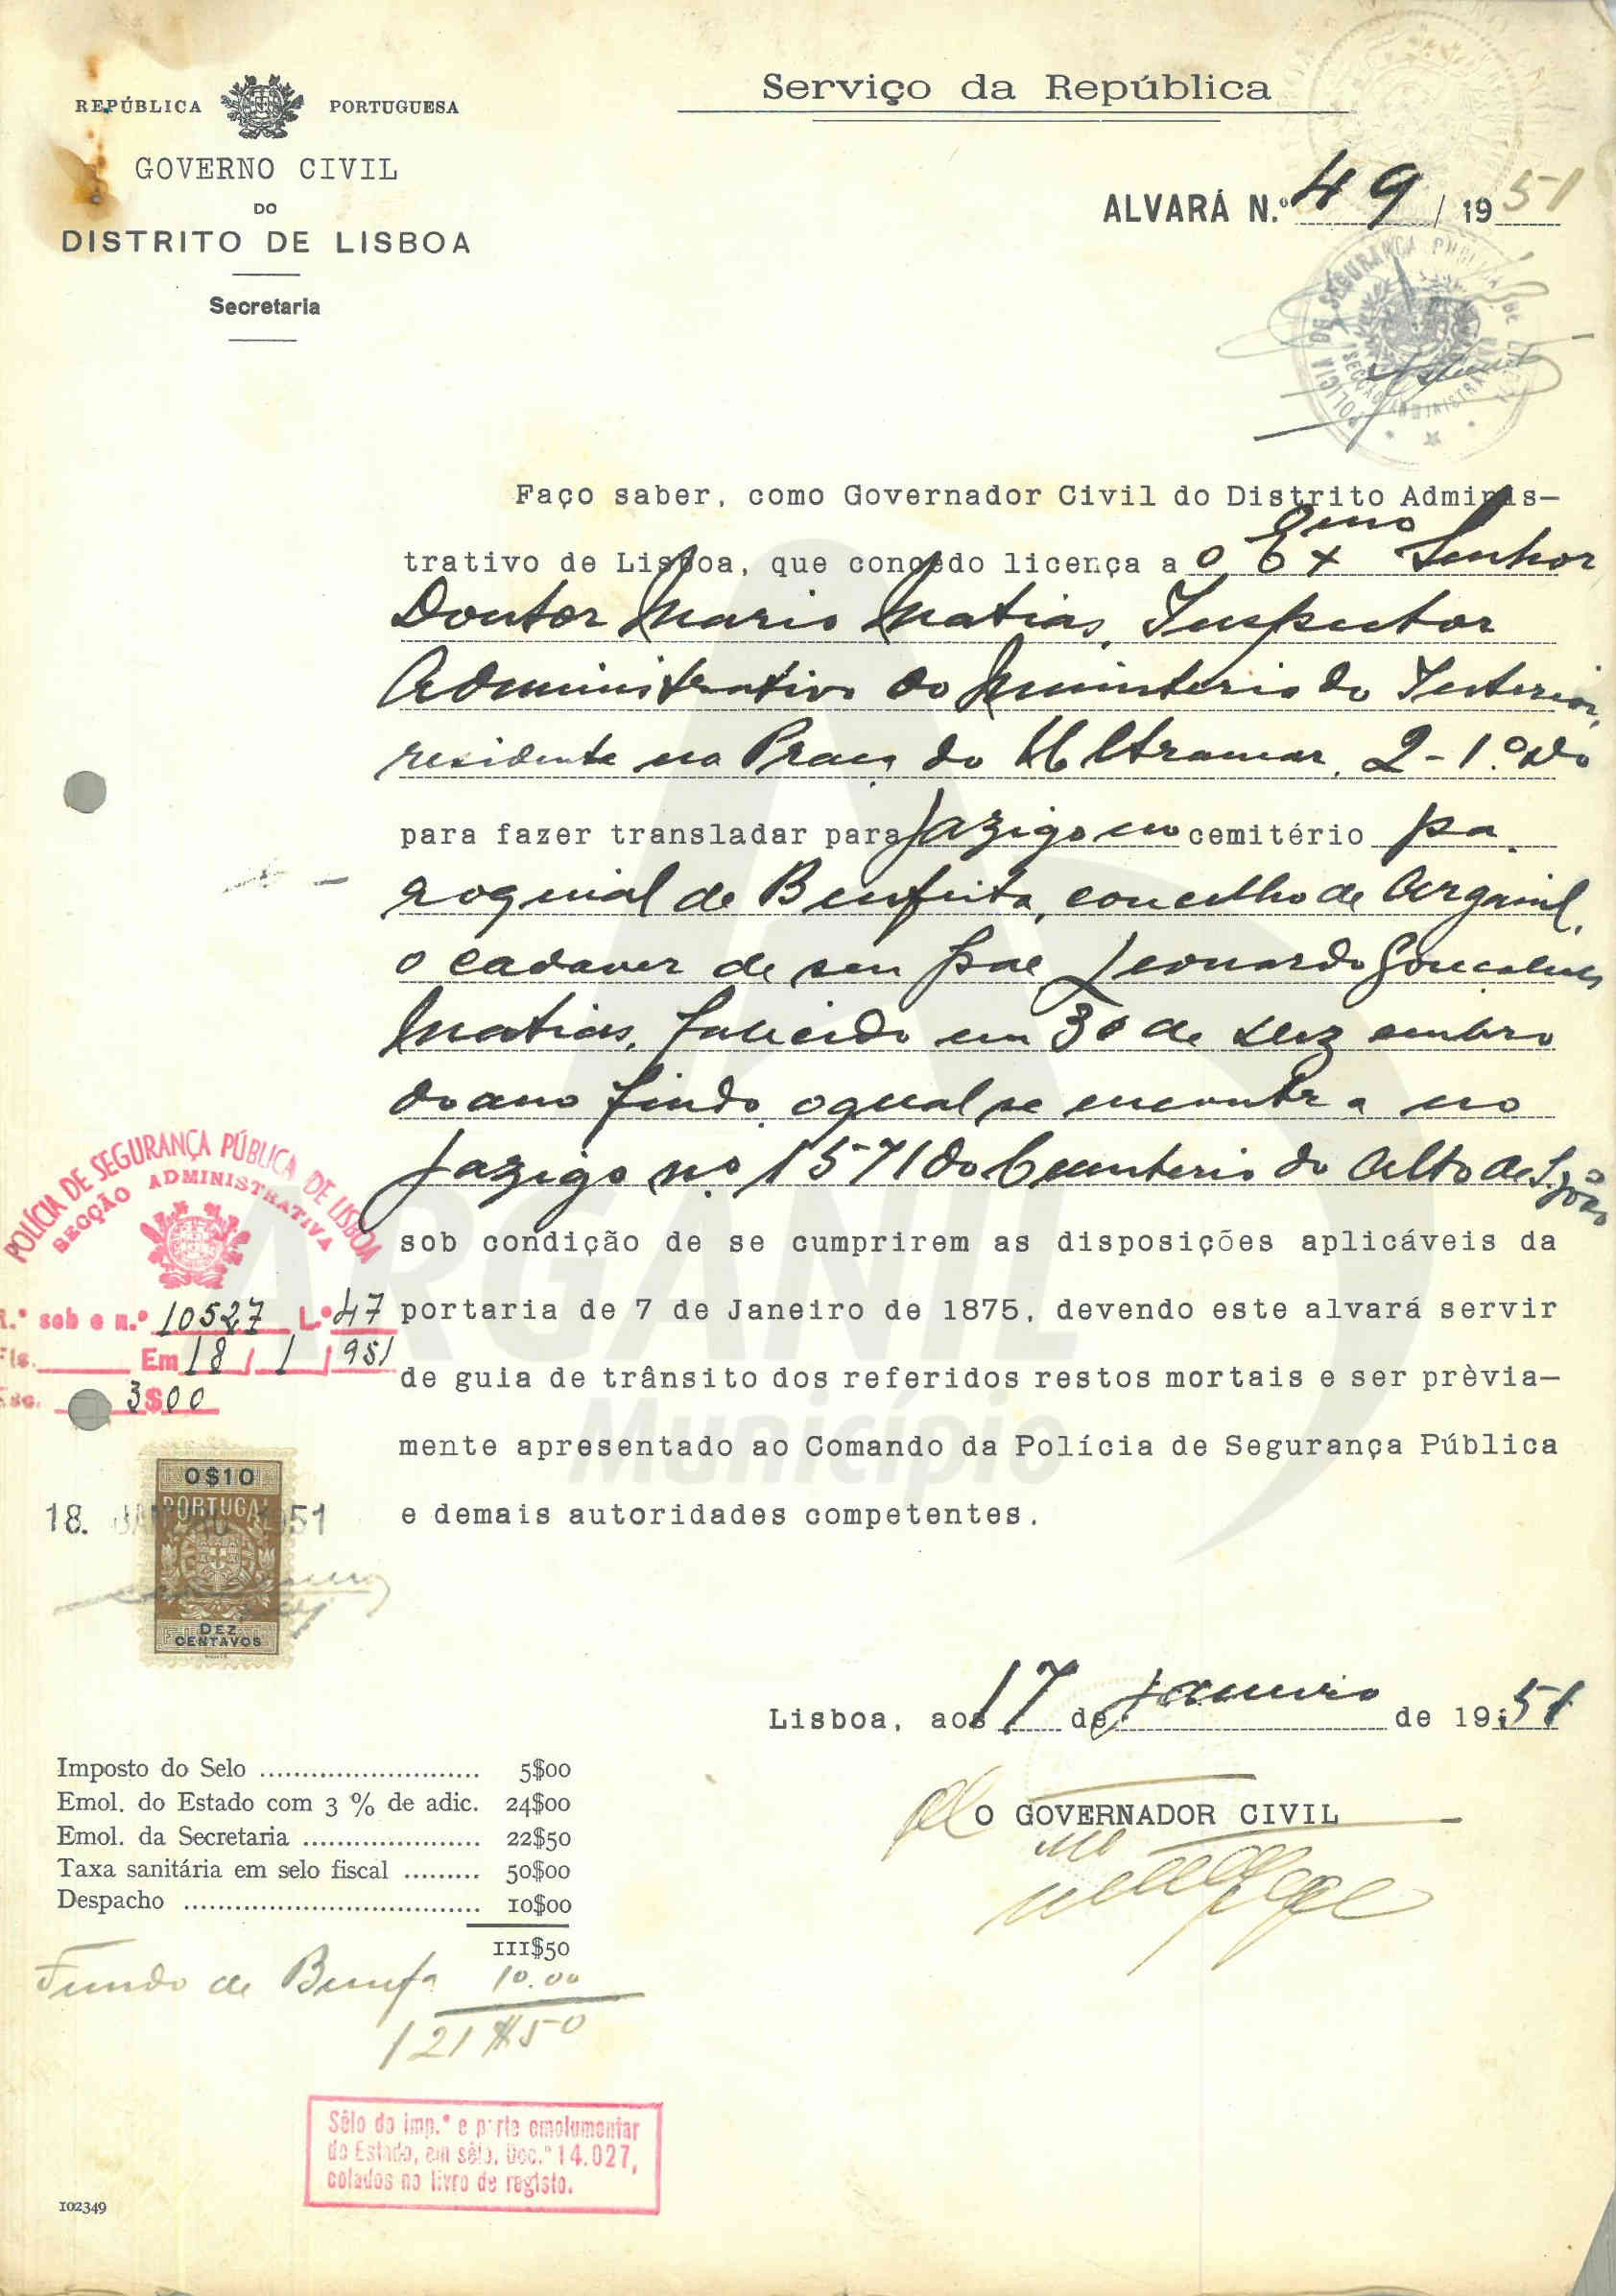 Serviço da República
REPÚBLICA PORTUGUESA
GOVERNO CIVIL
DO
DISTRITO DE LISBOA
Secretaria
ALVARÁ N.º 49 / 19 51
POLICIA DE SEGURANÇA PUBLICA DE LISBOA
SECÇÃO ADMINISTRATIVA
Faço saber, como Governador Civil do Distrito Adminis-
trativo de Lisboa, que concedo licença a o Exmo Senhor
Doutor Mario Matias, Inspector
Administrativo do Ministerio do Interior,
residente na Praça do Ultramar, 2-1.º
para fazer transladar para Jazigo no cemitério pa
roquial de Benfeita, concelho de Arganil,
o cadaver de seu pae Leonardo Gonçalves
Matias, falecido em 30 de dezembro
do ano findo, o qual se encontra no
jazigo nº 1571 do Cemiterio do Alto de S. João
sob condição de se cumprirem as disposições aplicáveis da
portaria de 7 de Janeiro de 1875, devendo este alvará servir
de guia de trânsito dos referidos restos mortais e ser prèvia-
mente apresentado ao Comando da Polícia de Segurança Pública
e demais autoridades competentes.
POLÍCIA DE SEGURANÇA PÚBLICA DE LISBOA
SECÇÃO ADMINISTRATIVA
sob o n.º 10527 L.º 47
Fls. Em 18 / 1 / 951
Esc. 3$00
0$10
PORTUGAL
18. JANEIRO 1951
DEZ
CENTAVOS
Lisboa, aos 17 de janeiro de 1951
O GOVERNADOR CIVIL
Imposto do Selo .......................... 5$00
Emol. do Estado com 3 % de adic. 24$00
Emol. da Secretaria ..................... 22$50
Taxa sanitária em selo fiscal ......... 50$00
Despacho ................................... 10$00
111$50
Fundo de 10.00
121$50
Sêlo do imp.º e parte emolumentar
do Estado, em sêlo, Dec.º 14.027,
colados no livro de registo.
102349
ARGANIL
Município